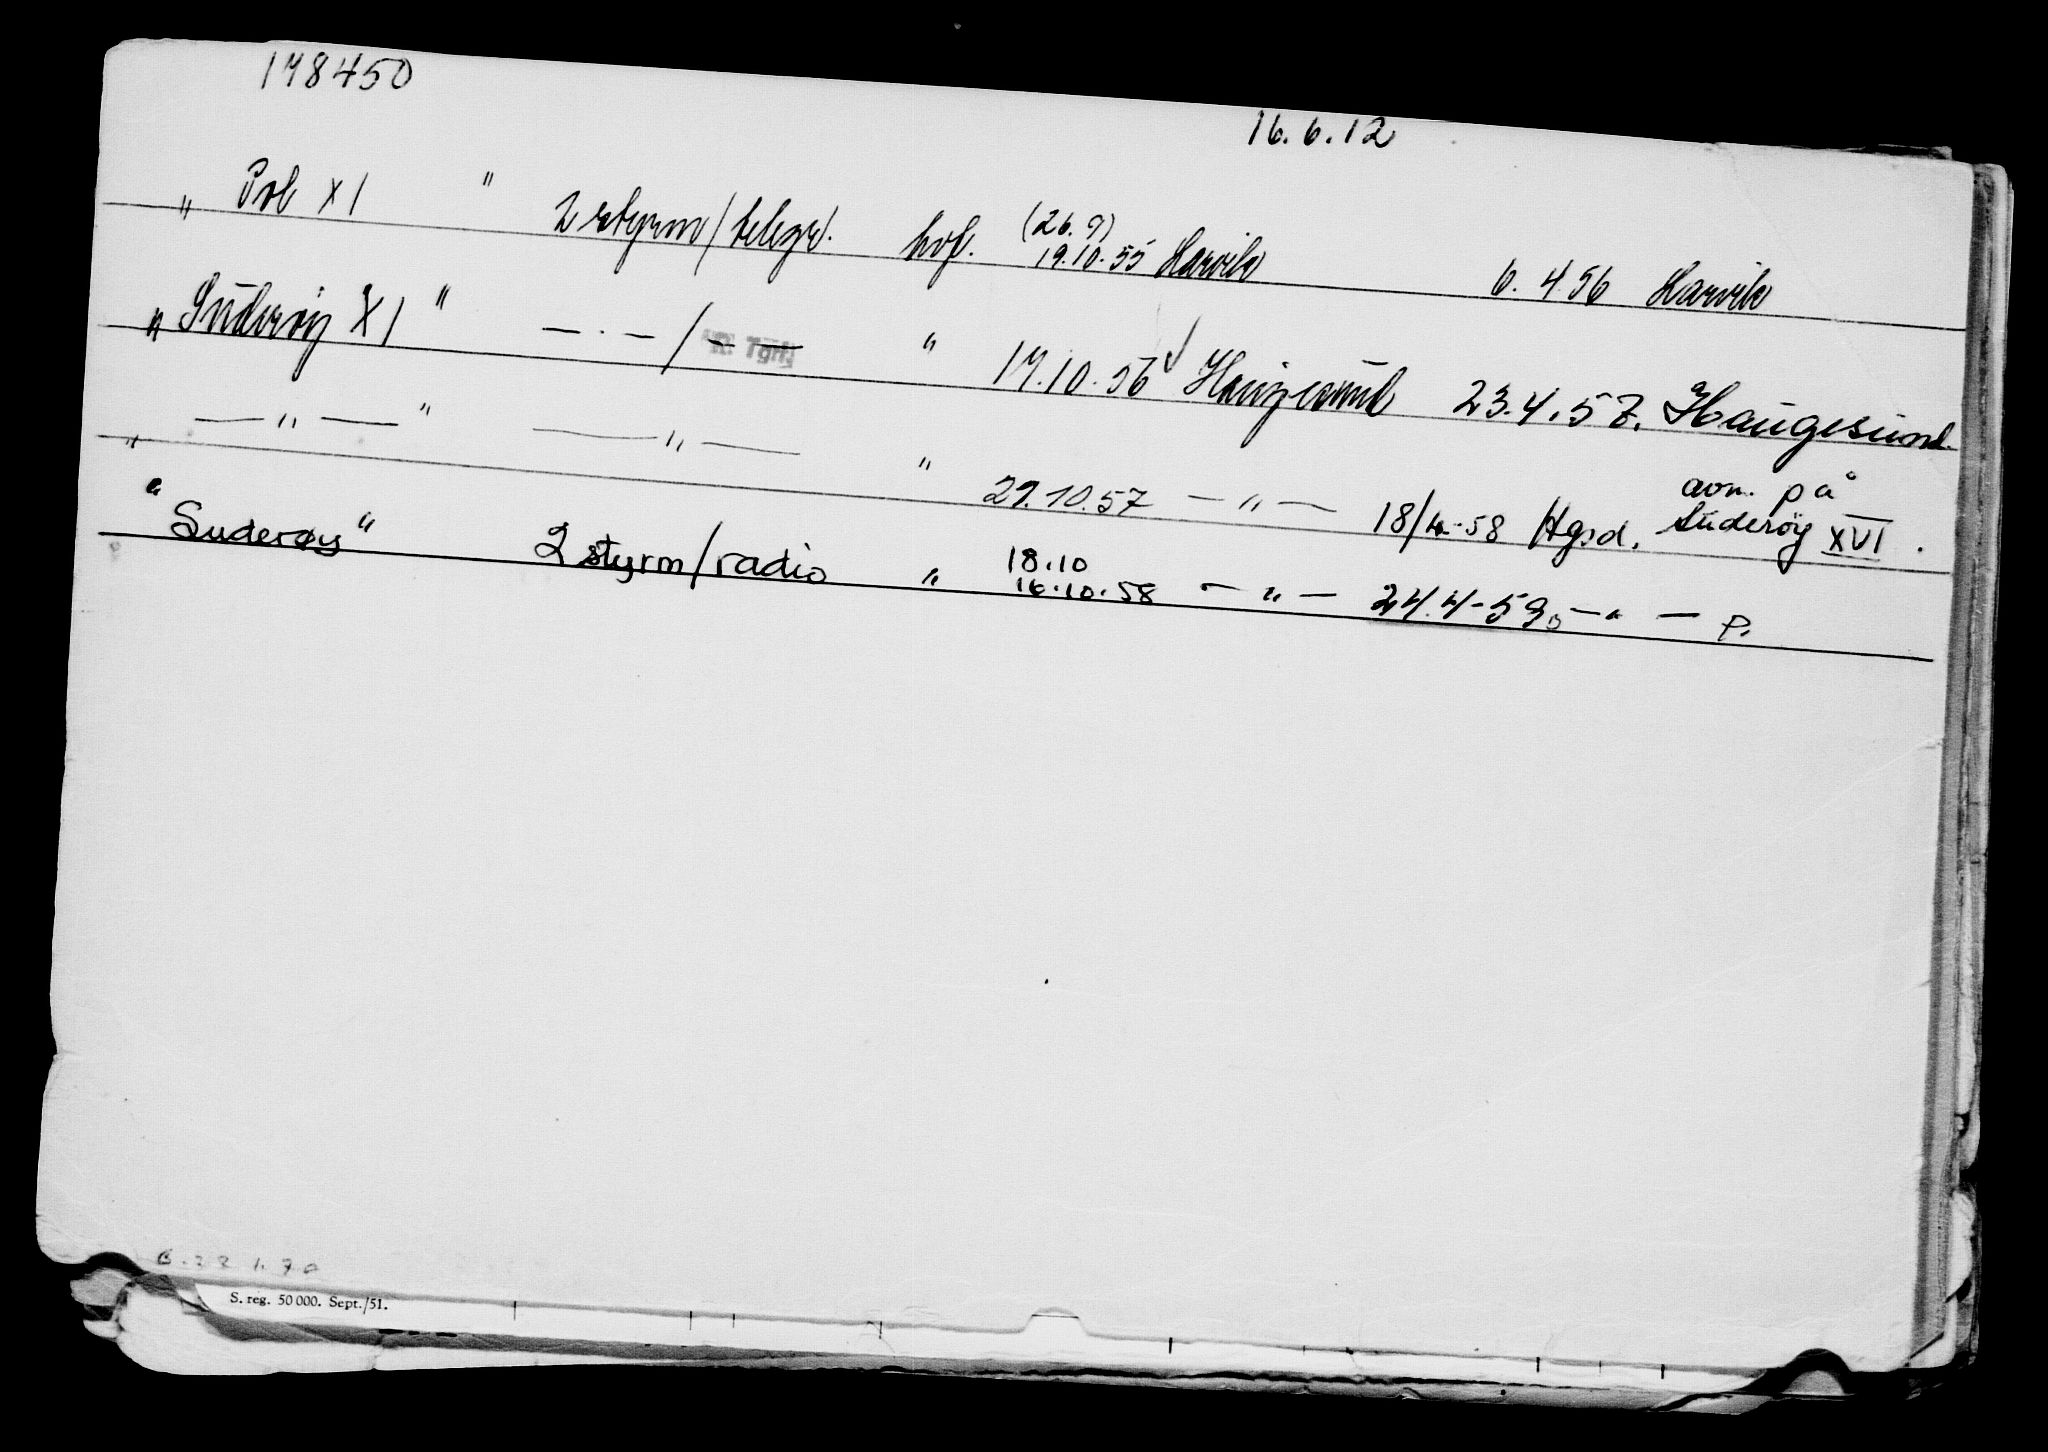 178450
16.6.12
„ Pol XI " 2 styrm/telegr. hvf. (26.9) 19.10.55 Larvik 6.4.56 Larvik
„ Suderøy XI " — · — / R. Tgrf. — " 17.10.56 ✓ Haugesund 23.4.57. Haugesund.
„ — " — " — " — " 29.10.57 — " — 18/4-58 Hgsd. avm. på Suderøy XVI.
" Suderøy " 2 styrm/radio " 18.10 16.10.58 — " — 24.4-59 — " — P.
S. reg. 50 000. Sept./51.